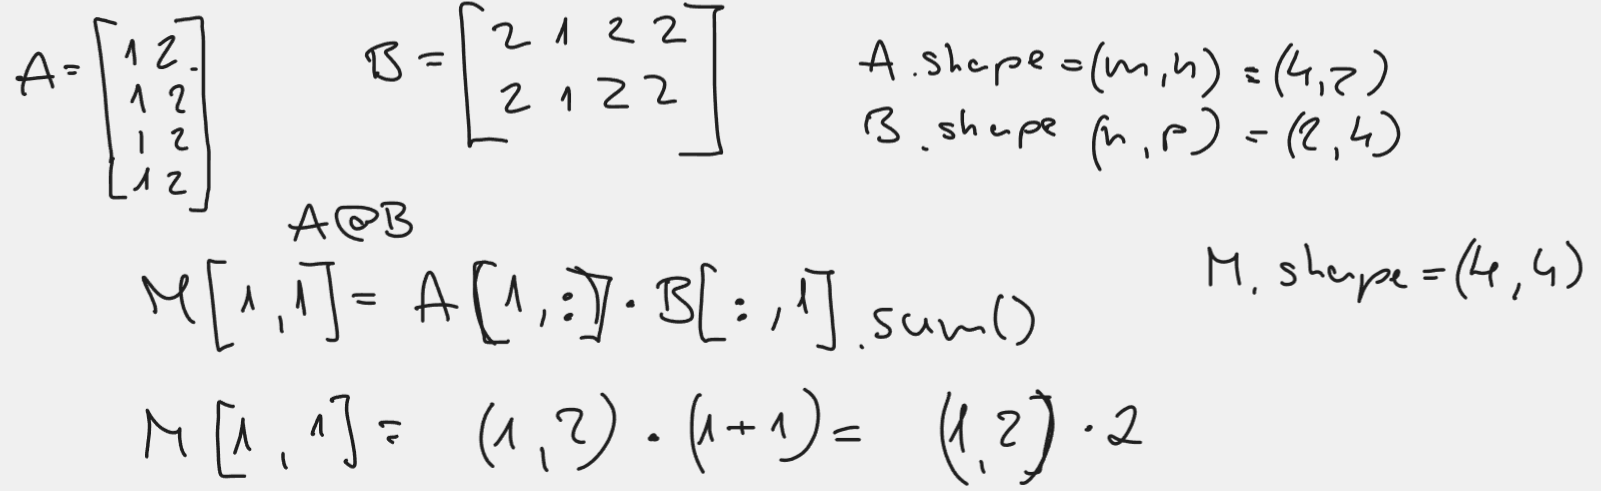 A = [1 2 1 2 1 2 1 2]
B = [2 1 2 2 2 1 2 2]
A.shape = (m,n) = (4,2)
B.shape (n,p) = (2,4)
A@B
M[1,1] = A[1,:] · B[:,1].sum()
M.shape = (4,4)
M[1,1] = (1,2) · (1+1) = (1,2) · 2